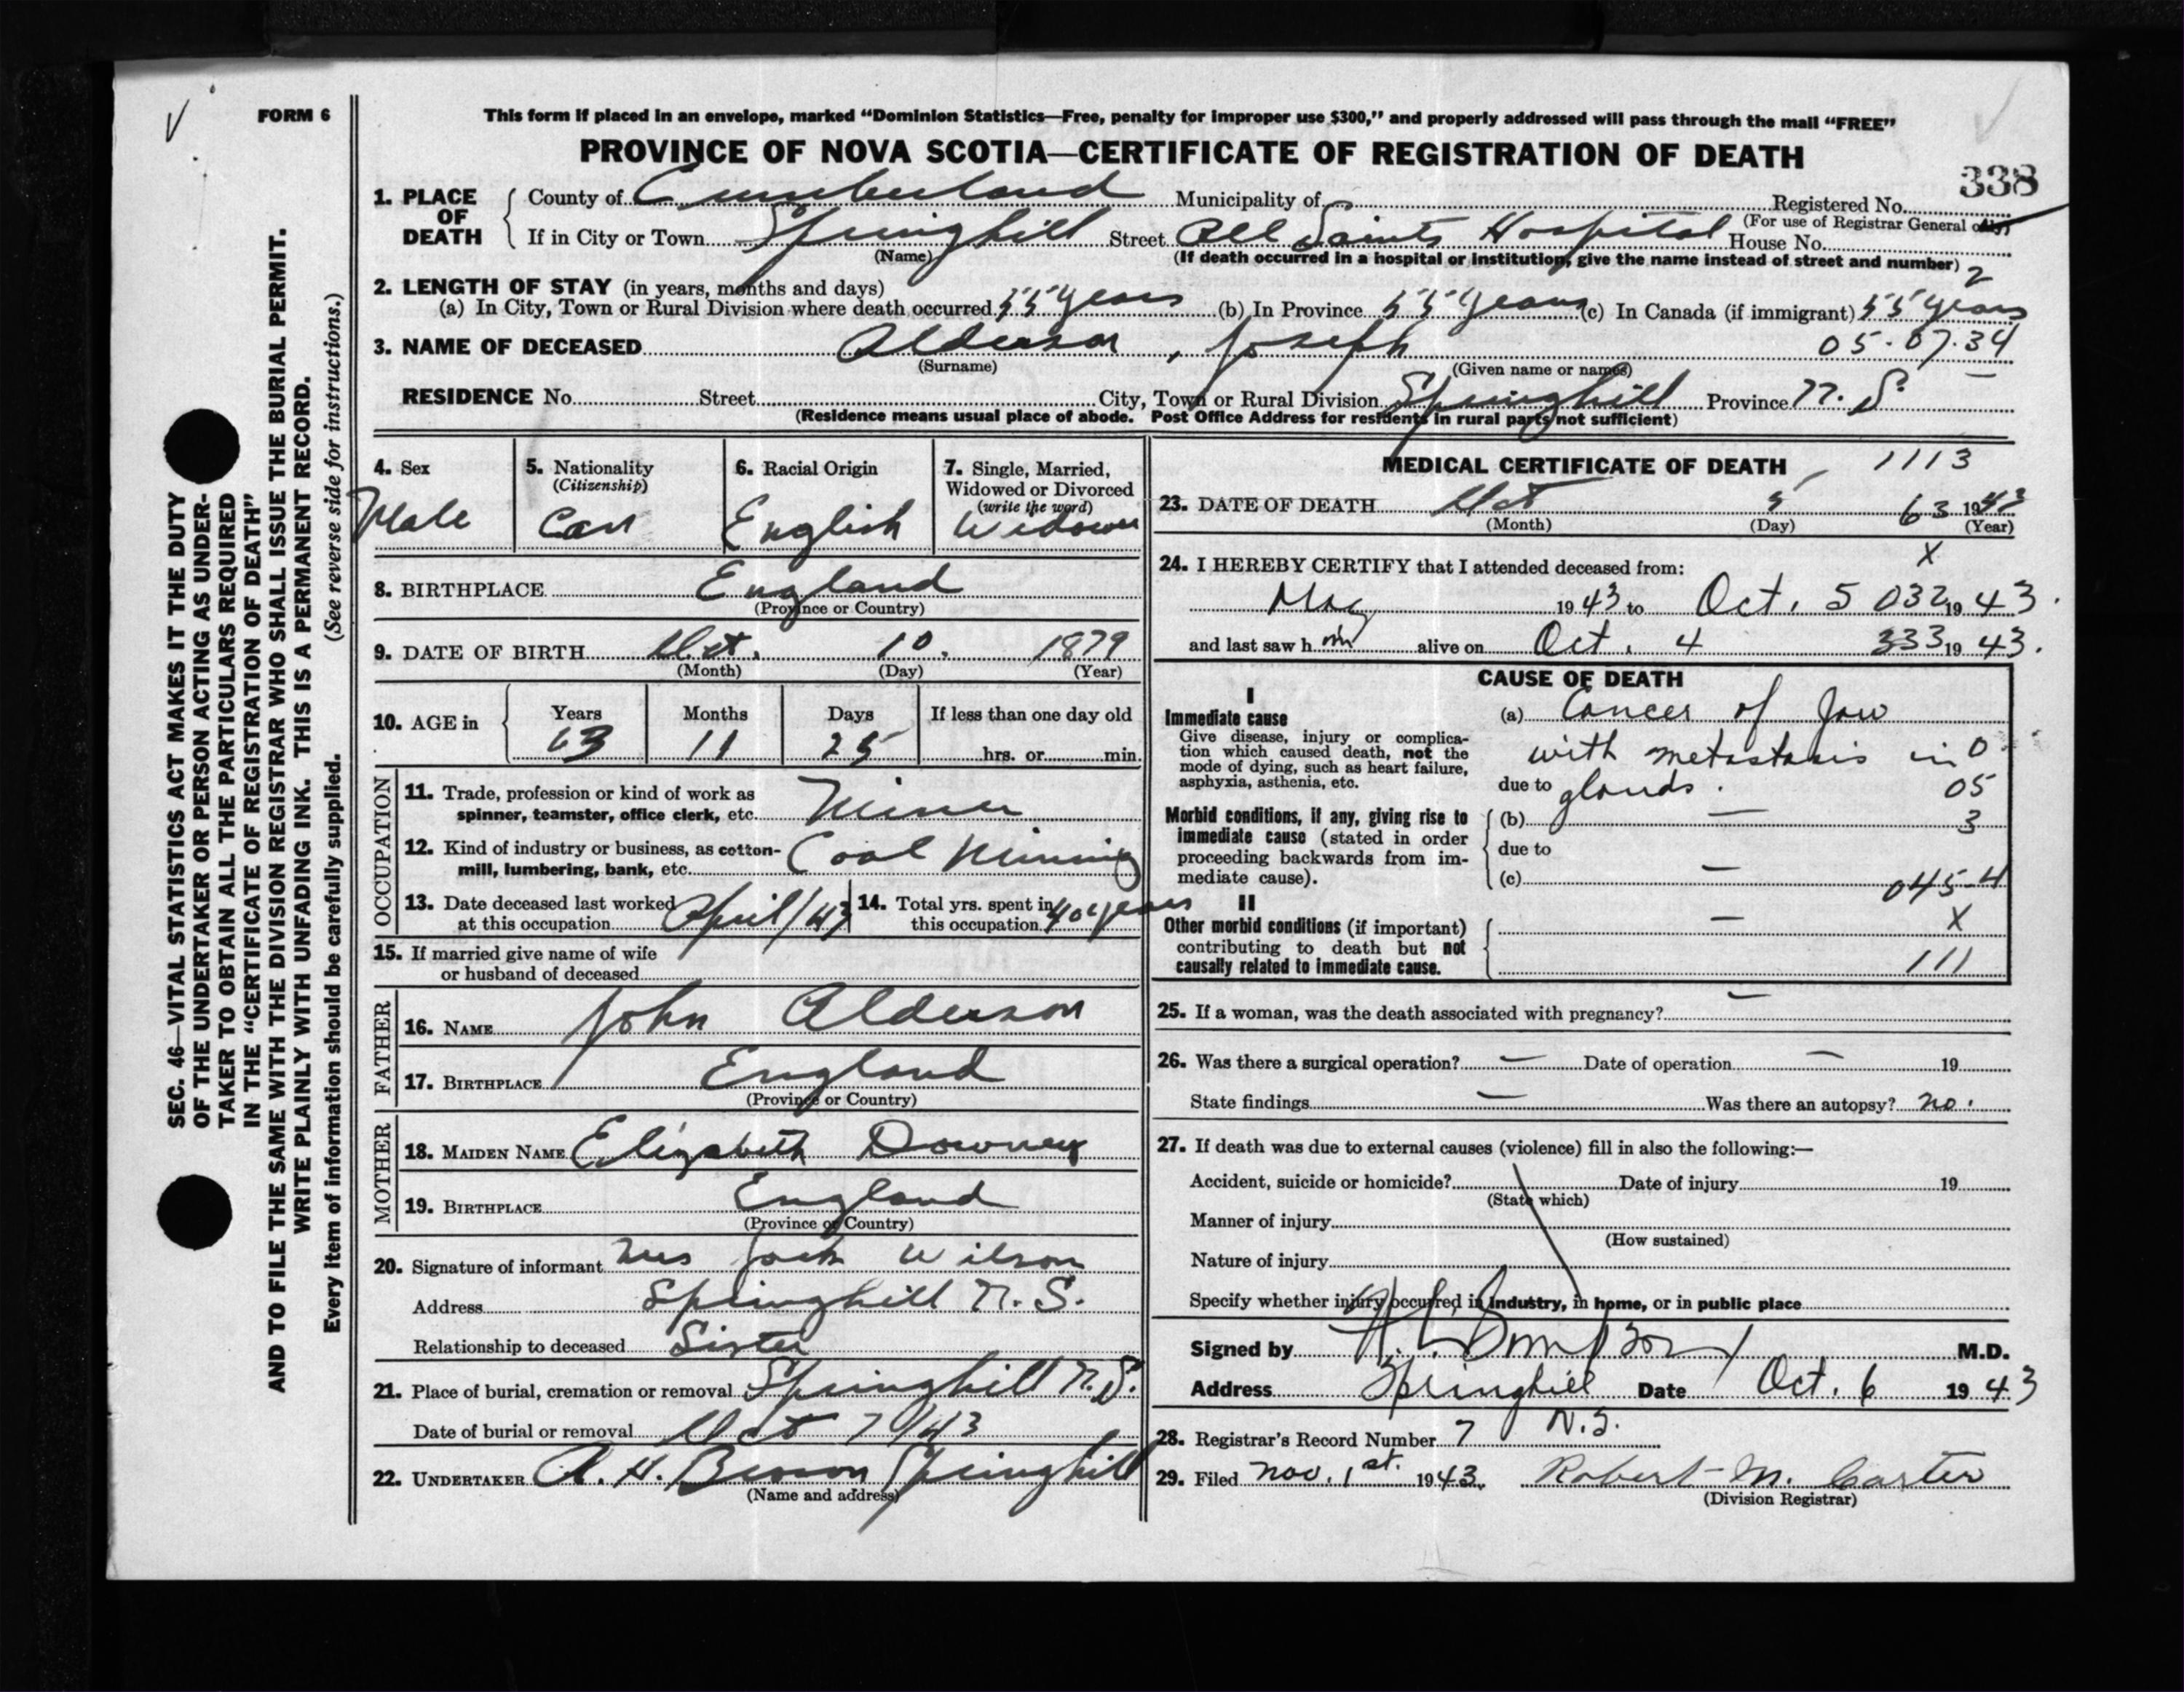 FORM 6
This form if placed in an envelope, marked “Dominion Statistics—Free, penalty for improper use $300,” and properly addressed will pass through the mail “FREE”
PROVINCE OF NOVA SCOTIA—CERTIFICATE OF REGISTRATION OF DEATH
338
1. PLACE OF DEATH
County of Cumberland Municipality of Registered No.
(For use of Registrar General only)
If in City or Town Springhill Street All Saints Hospital House No.
(Name) (If death occurred in a hospital or institution, give the name instead of street and number)
2
2. LENGTH OF STAY (in years, months and days)
(a) In City, Town or Rural Division where death occurred 55 years (b) In Province 55 years (c) In Canada (if immigrant) 55 years
3. NAME OF DECEASED Alderson, Joseph 05-07-34
(Surname) (Given name or names)
RESIDENCE No. Street City, Town or Rural Division Springhill Province N. S.
(Residence means usual place of abode. Post Office Address for residents in rural parts not sufficient)
4. Sex
Male
5. Nationality
(Citizenship)
Can
6. Racial Origin
English
7. Single, Married,
Widowed or Divorced
(write the word)
Widower
8. BIRTHPLACE England
(Province or Country)
9. DATE OF BIRTH Oct. 10. 1879
(Month) (Day) (Year)
10. AGE in
Years Months Days If less than one day old
63 11 25 hrs. or min.
OCCUPATION
11. Trade, profession or kind of work as
spinner, teamster, office clerk, etc. Miner
12. Kind of industry or business, as cotton-
mill, lumbering, bank, etc. Coal Mining
13. Date deceased last worked
at this occupation April/43
14. Total yrs. spent in
this occupation 40 years
15. If married give name of wife
or husband of deceased
FATHER
16. NAME John Alderson
17. BIRTHPLACE England
(Province or Country)
MOTHER
18. MAIDEN NAME Elizabeth Downey
19. BIRTHPLACE England
(Province or Country)
20. Signature of informant Mrs Jack Wilson
Address Springhill N. S.
Relationship to deceased Sister
21. Place of burial, cremation or removal Springhill N. S.
Date of burial or removal Oct 7/43
22. UNDERTAKER A. H. Brown Springhill
(Name and address)
MEDICAL CERTIFICATE OF DEATH 1113
23. DATE OF DEATH Oct 5 63 1943
(Month) (Day) (Year)
X
24. I HEREBY CERTIFY that I attended deceased from:
May 1943 to Oct. 5 032 19 43.
and last saw him alive on Oct. 4 333 19 43.
CAUSE OF DEATH
I
Immediate cause
Give disease, injury or complica-
tion which caused death, not the
mode of dying, such as heart failure,
asphyxia, asthenia, etc.
(a) Cancer of Jaw
with metastasis in 0
due to glands. 05
Morbid conditions, if any, giving rise to
immediate cause (stated in order
proceeding backwards from im-
mediate cause).
(b) — 3
due to
(c) — 045-4
II
Other morbid conditions (if important)
contributing to death but not
causally related to immediate cause.
— X
111
25. If a woman, was the death associated with pregnancy? —
26. Was there a surgical operation? — Date of operation — 19
State findings — Was there an autopsy? no.
27. If death was due to external causes (violence) fill in also the following:—
Accident, suicide or homicide? Date of injury 19
(State which)
Manner of injury
(How sustained)
Nature of injury
Specify whether injury occurred in industry, in home, or in public place
Signed by M.D.
Address Springhill Date Oct. 6 1943
N.S.
28. Registrar's Record Number 7
29. Filed Nov. 1st. 1943. Robert M. Carter
(Division Registrar)
SEC. 46—VITAL STATISTICS ACT MAKES IT THE DUTY
OF THE UNDERTAKER OR PERSON ACTING AS UNDER-
TAKER TO OBTAIN ALL THE PARTICULARS REQUIRED
IN THE “CERTIFICATE OF REGISTRATION OF DEATH”
AND TO FILE THE SAME WITH THE DIVISION REGISTRAR WHO SHALL ISSUE THE BURIAL PERMIT.
WRITE PLAINLY WITH UNFADING INK. THIS IS A PERMANENT RECORD.
Every item of information should be carefully supplied. (See reverse side for instructions.)